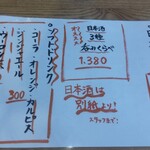 日本酒
3種
呑みくらべ
1.380
日本酒は
別紙より!
スタッフまで!
ソフトドリンク
コーラ・オレンジ・カルピス
ジンジャエール
ウーロン
300